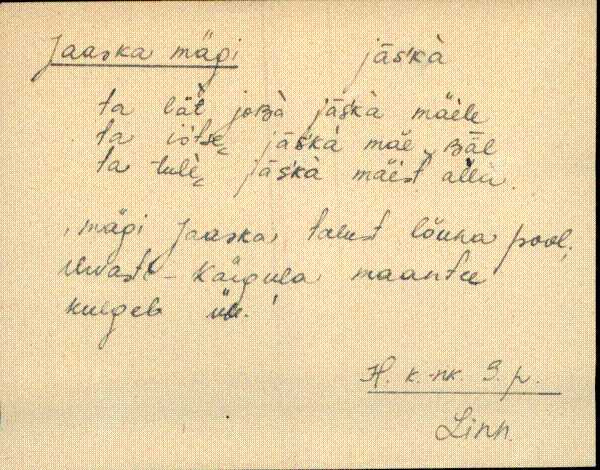 Jaaska mägi jās̀kà
ta lät̀ joʙà jās̀kà mäele
ta jās̀kà mäe ʙäl
ta tulè jās̀kà mäest alla.
, mägi Jaaska talust lõuna pool,
Urvaste – Kärgula maantee
kulgeb üle.'
H. k.-nk. S. p.
Linn.